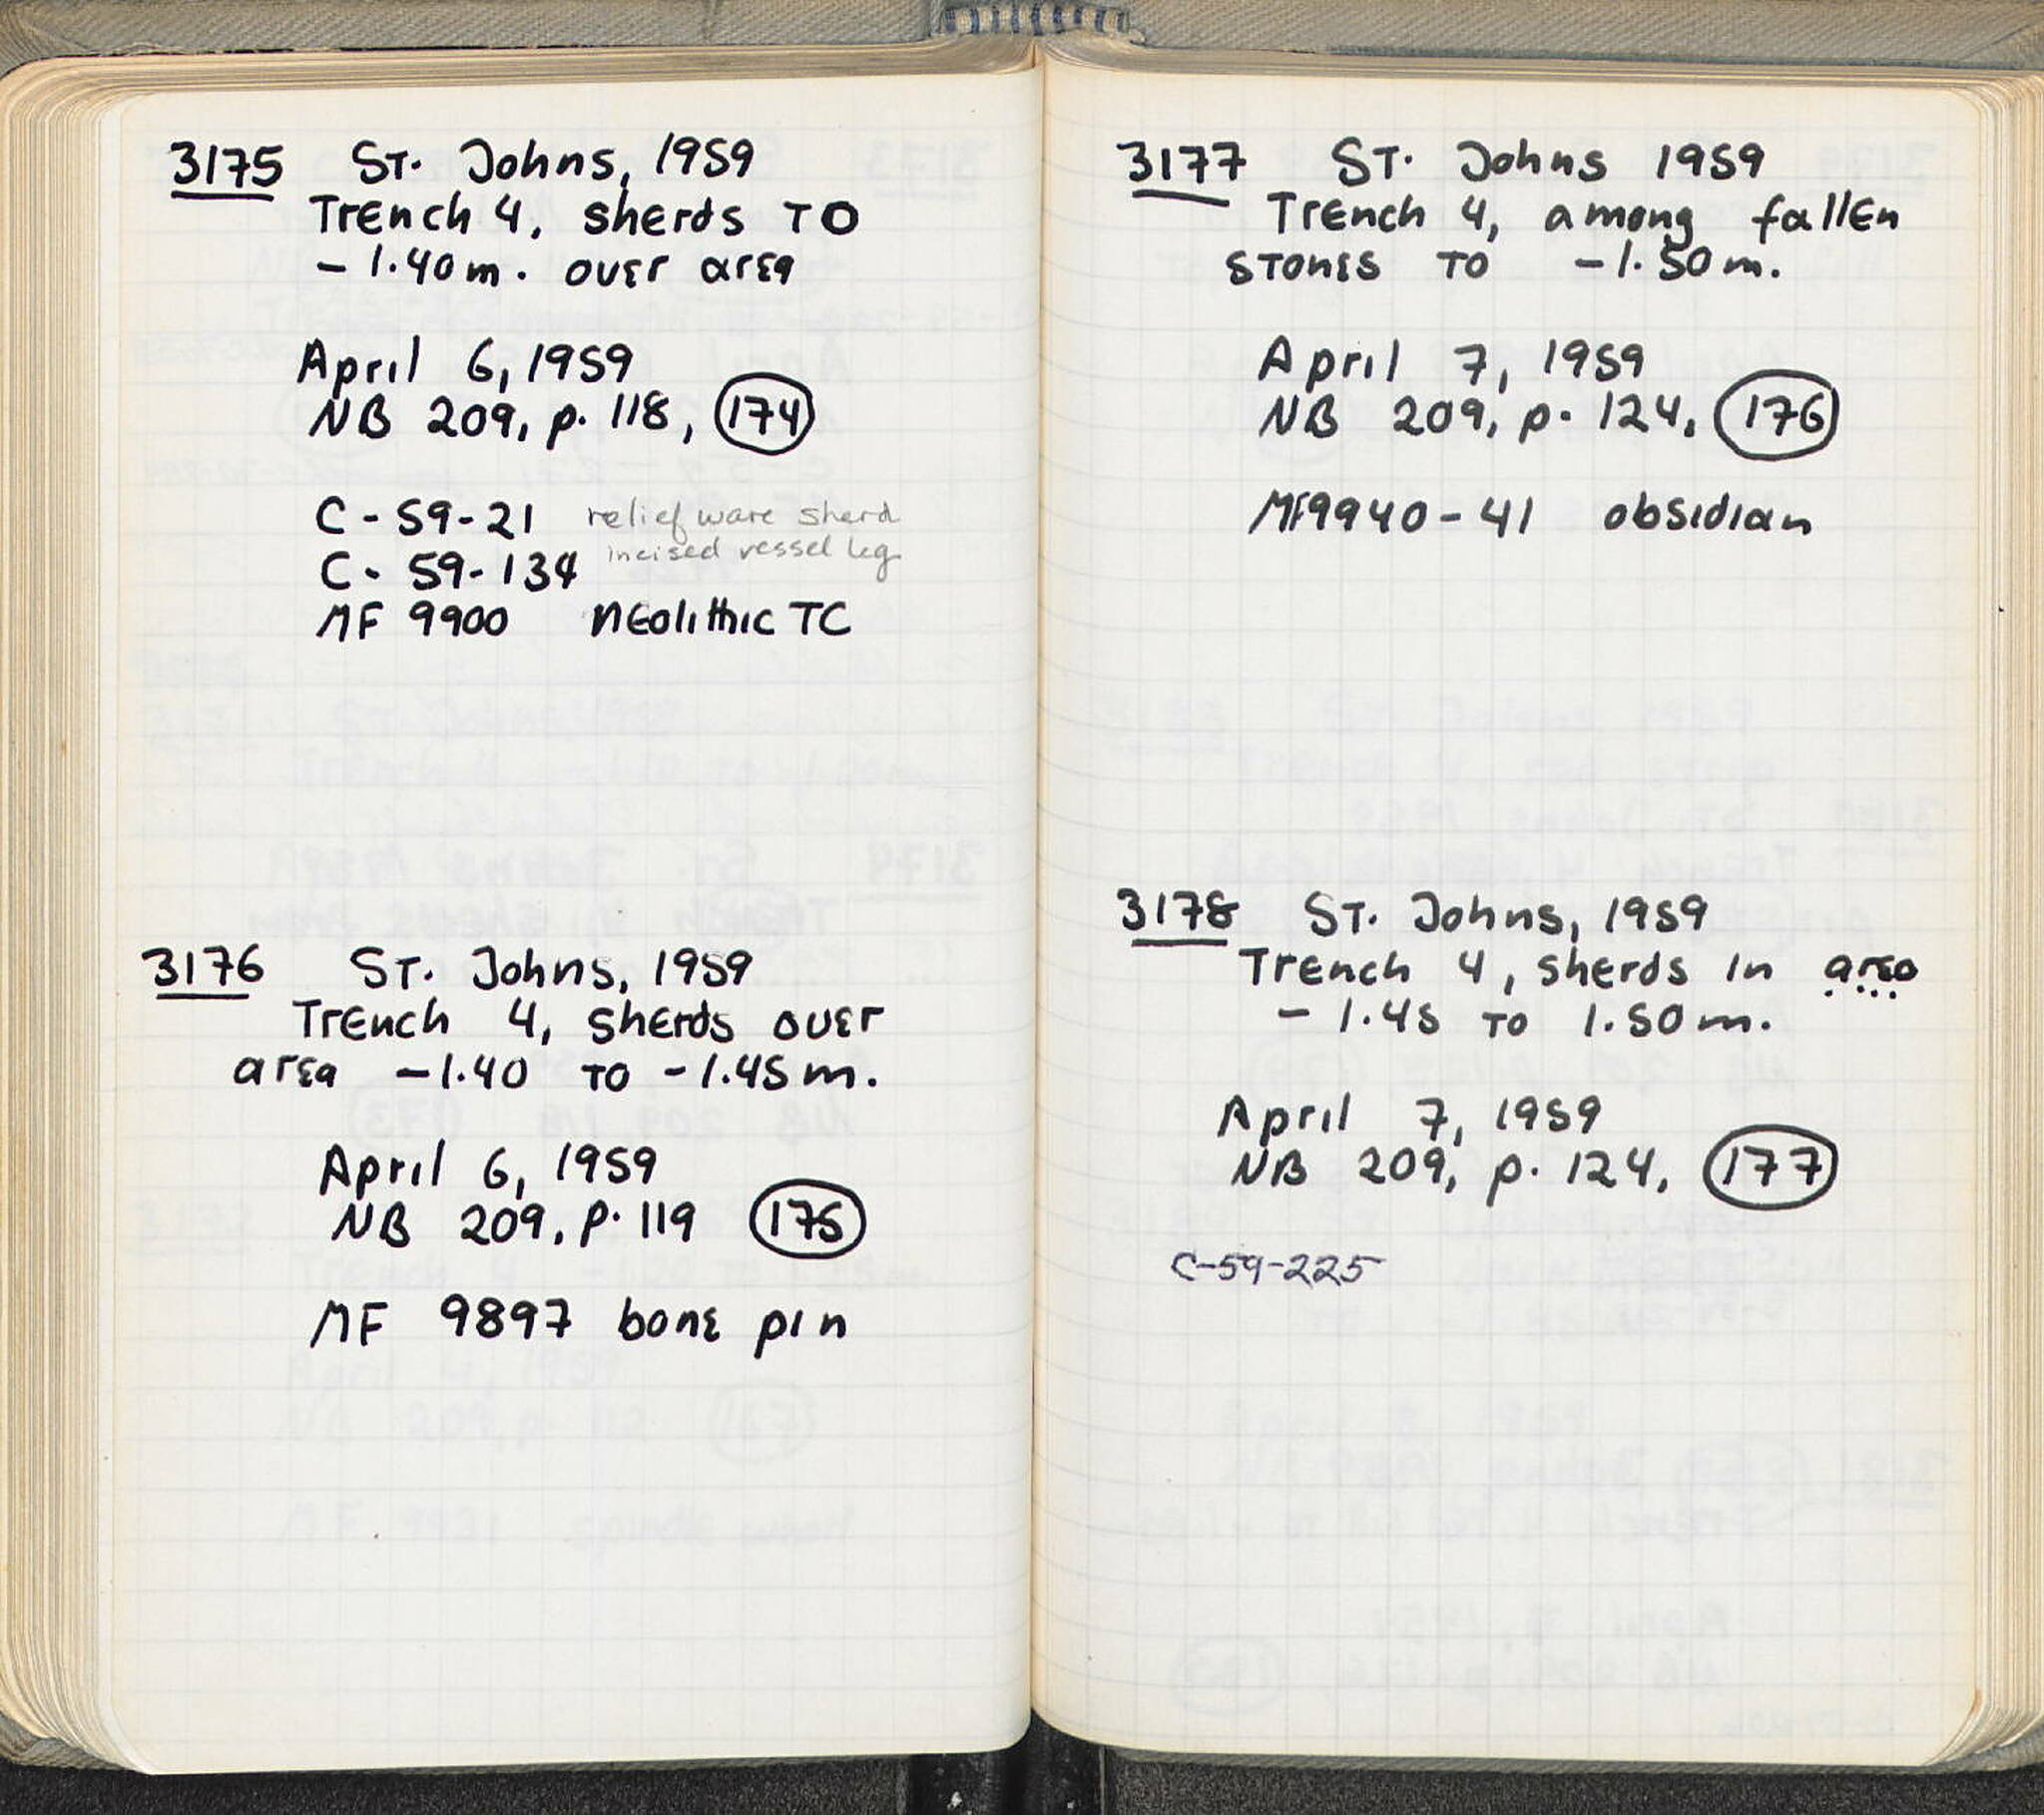 3175 St. Johns, 1959
Trench 4, sherds to
- 1.40 m. over area
April 6, 1959
NB 209, p. 118, 174
C-59-21 relief ware sherd
C-59-134 incised vessel leg
MF 9900 Neolithic TC
3176 St. Johns, 1959
Trench 4, sherds over
area -1.40 to -1.45 m.
April 6, 1959
NB 209, p. 119 175
MF 9897 bone pin
3177 St. Johns 1959
Trench 4, among fallen
stones to -1.50 m.
April 7, 1959
NB 209, p. 124, 176
MF9940-41 obsidian
3178 St. Johns, 1959
Trench 4, sherds in area
- 1.45 to 1.50 m.
April 7, 1959
NB 209, p. 124, 177
C-59-225